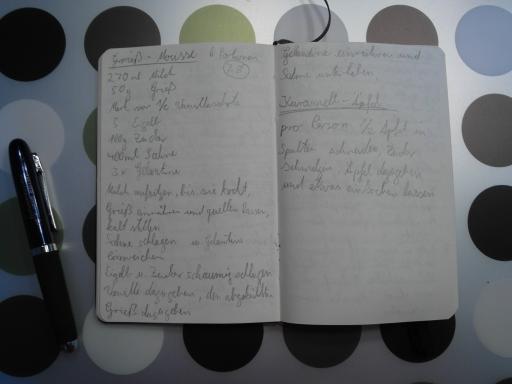 Grieß-Mousse 6 Portionen
270 ml Milch
50g Grieß
Mark von 1/2 Vanilleschote
5 Eigelb
100g Zucker
400ml Sahne
3 x Gelantine
Milch aufsetzen, bis sie kocht,
Grieß einrühren und quellen lassen,
kalt stellen
Sahne schlagen u. Gelantine
einweichen
Eigelb u. Zucker schaumig schlagen
Vanille dazugeben, den abgekühlten
Grieß dazugeben
Gelantine einrühren und
Sahne unterheben
Karamell-Äpfel
pro Person 1/2 Apfel in
Spalten schneiden Zucker
Schmelzen, Äpfel dazugeben
und etwas einkochen lassen